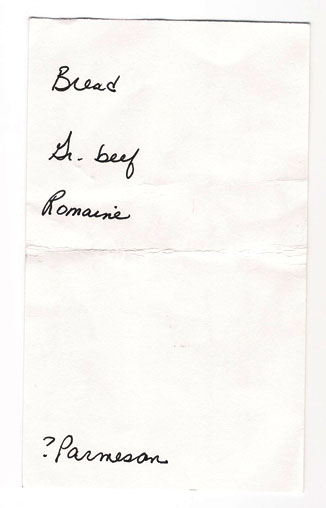 Bread
Gr. beef
Romaine
? Parmesan